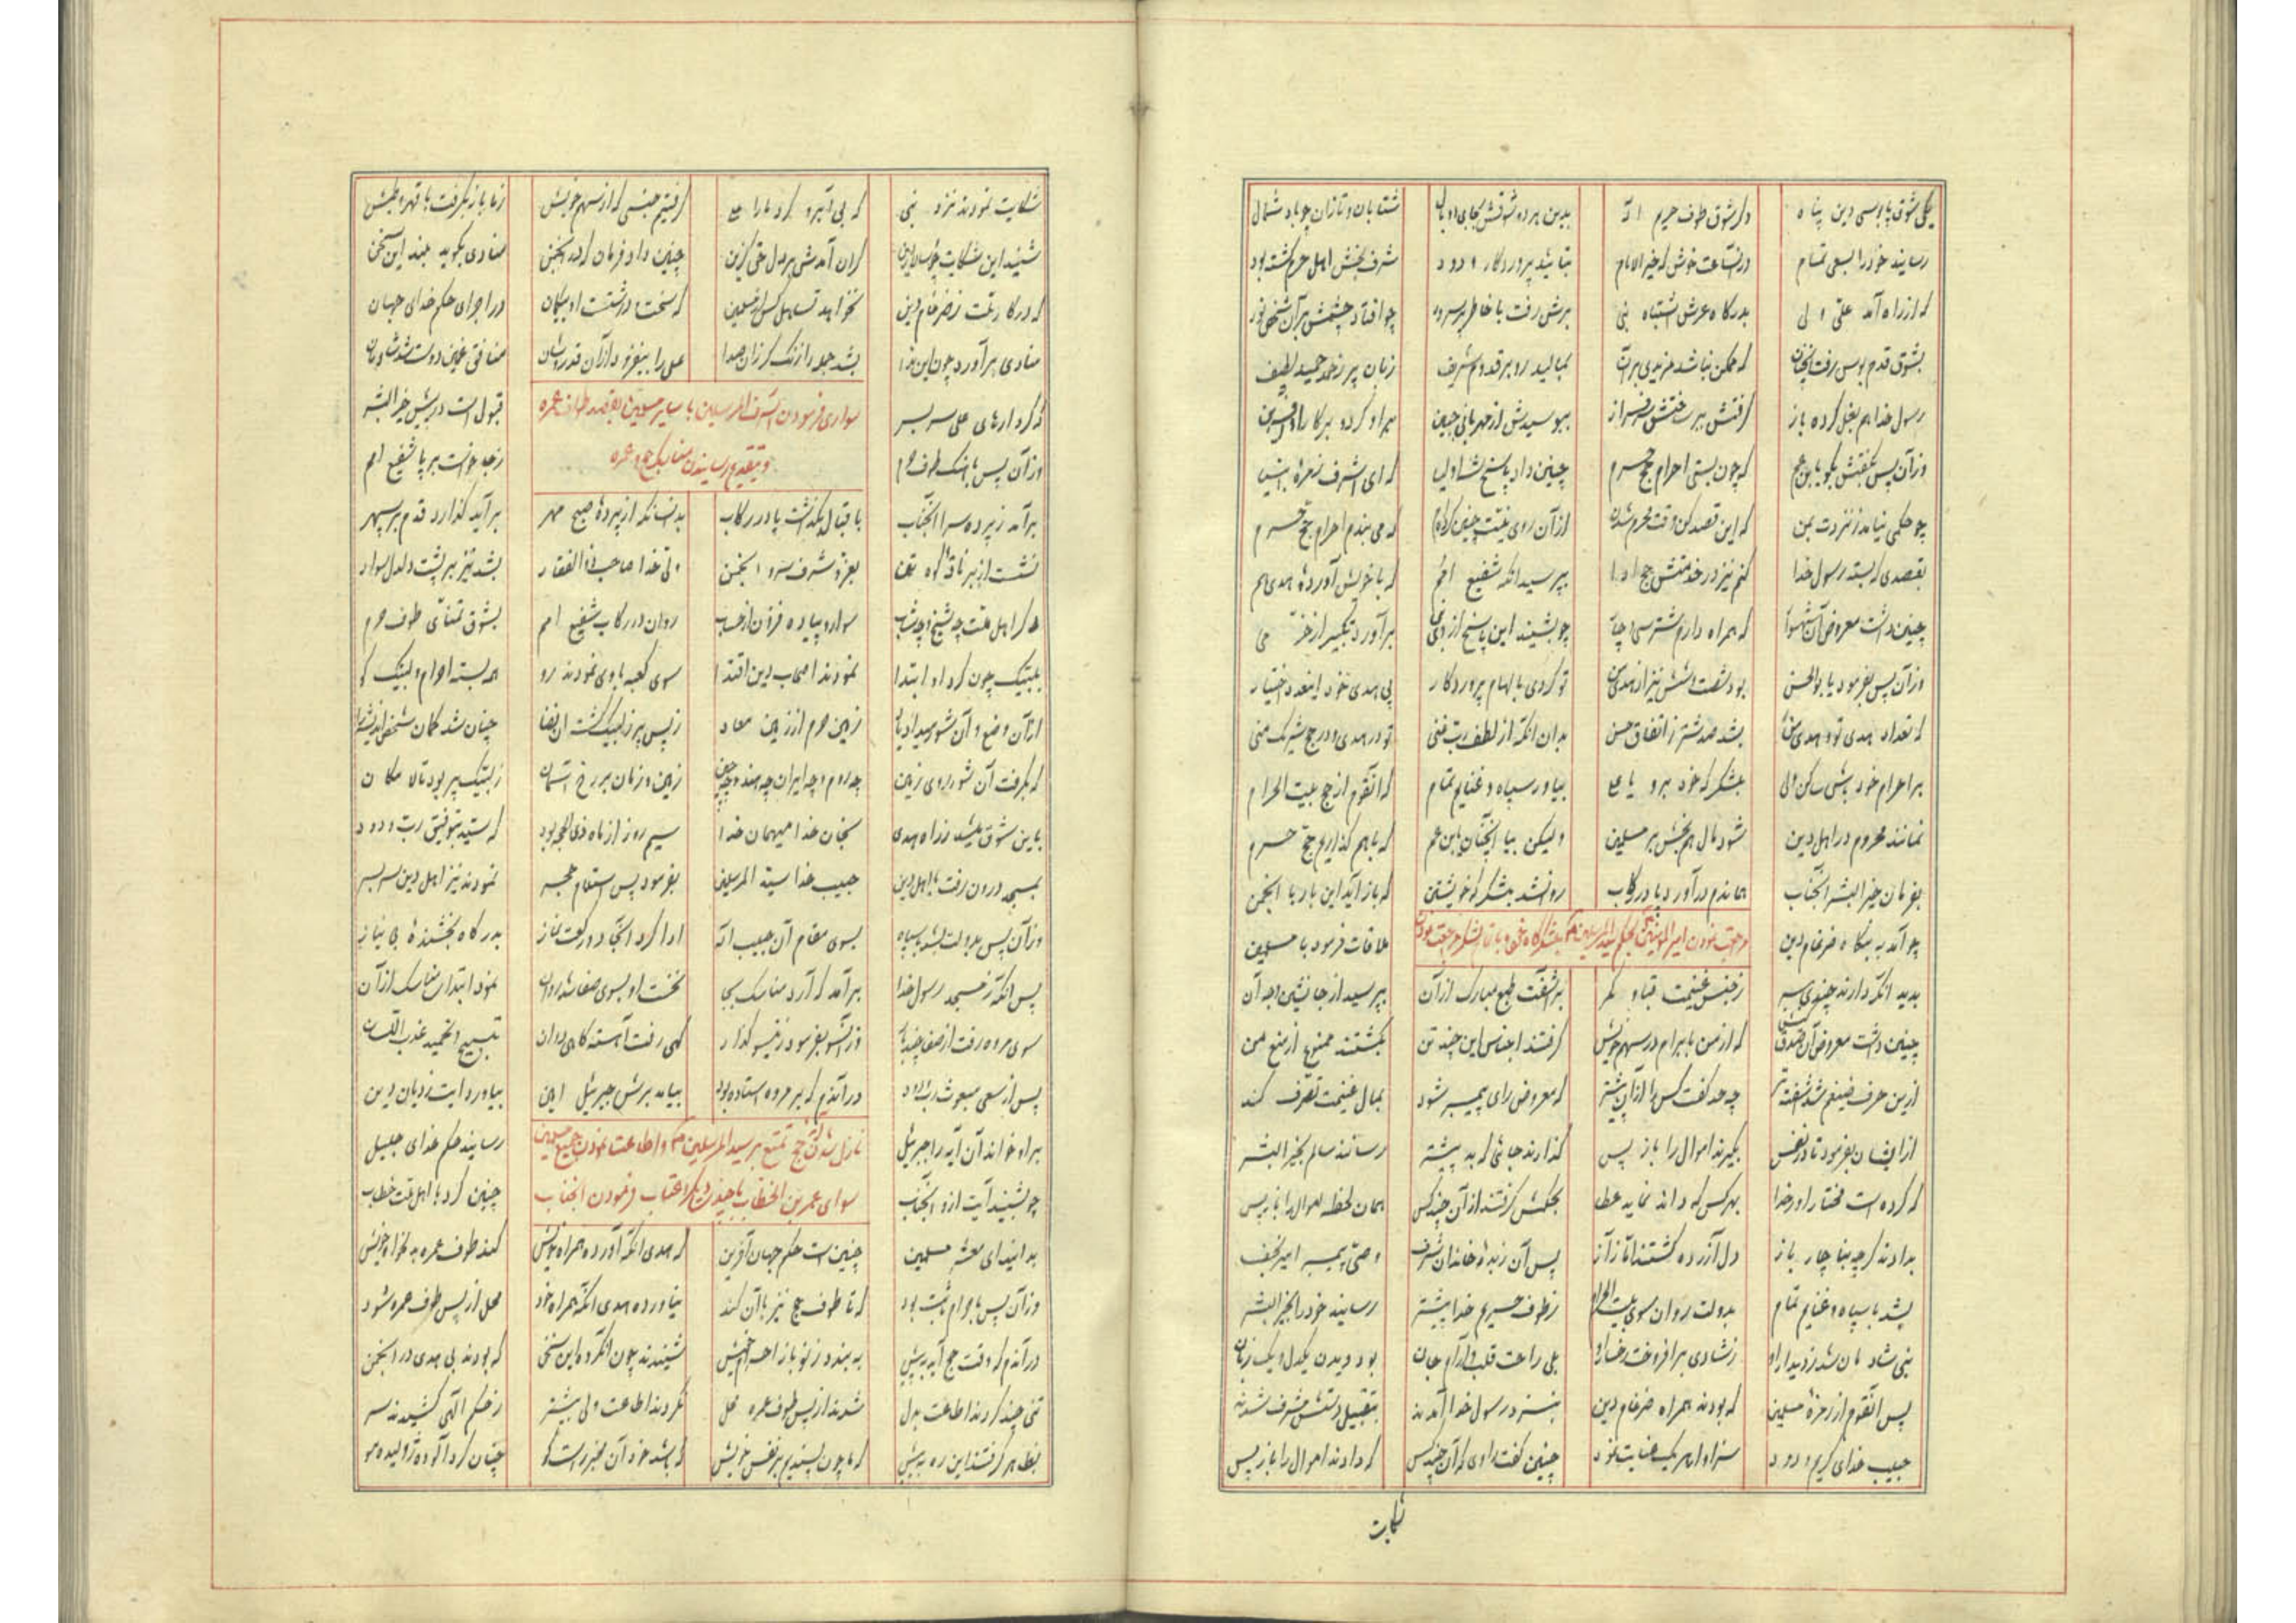 یکی شوق پابوسی دین پناه دگر شوق طوف حریم اله بدین هر دو شوقش بجای دو بال شتابان و تازان چو باد شمال
رسانید خود را بسعی تمام در آنساعت خوش که خیر الانام بتائید پروردگار ودود شرف بخش اهل حرم گشته بود
که از راه آمد علی ولی بدرگاه عرش اشتباه نبی برش رفت با خاطر پر سرور چو افتاد چشمش بر آن شخص نور
بشوق قدم بوس رفت آنچنان که ممکن نباشد مزیدی بر آن بمالید رو بر قدوم شریف زبان پر ز حمد حمید لطیف
رسول خدا هم بغل کرده باز گرفتش ببر سرفراز ببوسیدش از مهربانی جبین بر او کرده بر کار او آفرین
وز آن پس بگفتش بگو یا بن عم که چون بستی احرام حج حرم چنین داد پاسخ شه اولیا که ای اشرف زمره انبیا
چو حکمی نیامد ز نزدت بمن که این قصد کن وقت محرم شدن از آن روی نیت چنین که می بندم احرام حج حرم
بقصدی که بسته رسول خدا کنم نیز در خدمتش حج ادا بپرسید آنگه شفیع امم که با خویش آورده هدی هم
چنین داشت معروض آن که همراه دارم شتر سی و چار چو بشنید این پاسخ از وی نبی برآورد تکبیر از خرمی
وز آن پس بفرمود یا بوالحسن بود شصت و شش نیز از هدی من تو کردی بالهام پروردگار پی هدی خود اینعدد اختیار
که تعداد هدی تو و هدی من بشد صد شتر ز اتفاق حسن بدان آنکه از لطف رب غنی تو در هدی و در حج شریک منی
بر احرام خود باش ساکن ولی بلشکرگه خود برو یا علی بیاور سپاه و غنایم تمام که آنقوم از حج بیت الحرام
نمانند محروم در اهل دین شود مال هم بخش بر مسلمین ولیکن بیا آنچنان یا بن عم که با هم گذاریم حج حرم
بفرمان خیر البشر آنجناب هماندم درآورد پا در رکاب روانشد بلشکرگه خویشتن که باز آید این بار با انجمن
مراجعت نمودن امیر المؤمنین بحکم سید المرسلین بلشکرگاه خود و باز با لشکر مراجعت نمودن
چو آمد به بنگاه ضرغام دین ملاقات فرمود با مسلمین
بدید آنکه دارند چندی ببر ز جنس غنیمت قبا و کمر برآشفت طبع مبارک از آن بپرسید از جانشین وجه آن
چنین داشت معروض آن که از من بابرام در سهم خویش گرفتند اجناس این چند تن نگشتند ممنوع از منع من
ازین حرف ضیغم شد آشفته تر چه حد گفت کس را از آن پیشتر که معروض رای پیمبر شود بمال غنیمت تصرف کند
از ایشان بفرمود تا در نفس بگیرند اموال را باز پس گذارند جائی که بد پیشتر رسانند سالم بخیر البشر
که کرده است مختار او را خدا بهر کس که داند نماید عطا بحکمش گرفتند از آن چند کس همان لحظه اموال را باز پس
بدادند گرچه بناچار باز دل آزرده گشتند اما ز آز پس آن زبده خاندان شرف وصی پیمبر امیر نجف
بشد با سپاه و غنایم تمام بدولت روان سوی بیت الحرام ز طوف حریم خدا پیشتر رسانید خود را بخیر البشر
نبی شادمان شد ز دیدار او ز شادی برافروخت رخسار او بلی راحت قلب و آرام جان بود دیدن یکدل و یک زبان
پس آنقوم از زمره مسلمین که بودند همراه ضرغام دین بنزد رسول خدا آمدند بتقبیل دستش مشرف شدند
حبیب خدای کریم ودود سزاوار هر یک عنایت نمود چنین گفت راوی که آن چند کس که دادند اموال را باز پس
شکایت
شکایت نمودند نزد نبی که بی آبرو کرد ما را علی گرفتیم جنسی که از سهم خویش ز ما باز بگرفت با قهر و طیش
شنید این شکایت چو سالار دین گران آمدش بر دل حق گزین چنین داد فرمان که در انجمن منادی بگوید بلند این سخن
که در کار ملت ز ضرغام دین نخواهد تساهل کس از مسلمین که سخت و درشتست او بیگمان در اجرای حکم خدای جهان
منادی برآورد چون این ندا بشد جمله را زنگ گر زان صدا علی را بیفزود از آن قدر و شان منافق غمین دوست شد شادمان
که کردارهای علی سر بسر قبول است در پیش خیر البشر
سواری فرمودن اشرف المرسلین با سایر مسلمین بقصد طواف عمره
و بتقدیم رسانیدن مناسک حج و عمره
وز آن پس بآهنگ طوف حرم ز جا خواست بر پا شفیع امم
برآمد ز پرده سرا آنجناب باقبال بگذاشت پا در رکاب بدانسانکه از پرده صبح مهر برآید گذارد قدم بر سپهر
نشست از بر ناقه بعز و شرف سرور انجمن ولی خدا صاحب ذوالفقار بشد نیز بر پشت دلدل سوار
دگر اهل ملت چه شیخ و چه شاب سواره پیاده فزون از حساب روان در رکاب شفیع امم بشوق تمنای طوف حرم
بلبیک چون کرد او ابتدا نمودند اصحاب دین اقتدا سوی کعبه با وی نمودند رو همه بسته احرام و لبیک گو
از آن وضع و آن شور زمین حرم از زمین معاد ز بس پر ز لبیک گشت آن فضا چنان شد گمان
که بگرفت آن شور روی زمین چه روم و چه ایران چه هند و چه چین زمین و زمان بر رخ آسمان ز لبیک پر بود تا لامکان
باین شوق شد ز راه هدی بخان خدا میهمان خدا سیم روز از ماه ذی الحجه بود که سید بتوفیق رب ودود
بمسجد درون رفت با اهل دین حبیب خدا سید المرسلین بفرمود پس استلام حجر نمودند نیز اهل دین سر بسر
وز آن پس بدولت بشد با سپاه بسوی مقام آن حبیب اله ادا کرد آنجا دو رکعت نماز بدرگاه بخشنده بی نیاز
پس آنگه ز مسجد رسول خدا برآمد که آرد مناسک بجا نخست او بسوی صفا شد روان نمود ابتدای مناسک از آن
سوی مروه رفت از صفا وز آنسو بفرمود زینسو گذار گهی رفت آهسته گاهی دوان بتسبیح و تحمید عذب اللسان
پس از سعی مبعوث رب ودود در آندم که بر مروه استاده بود بیامد برش جبرئیل امین بیاورد آیت ز دیان دین
نازل شدن آیه حج تمتع بر سید المرسلین و اطاعت نمودن جمیع مسلمین
سوای عمر بن الخطاب با چند تن دیگر و عتاب فرمودن آنجناب
بر او خواند آن آیه را جبرئیل رسانید حکم خدای جلیل
چو بشنید آیت از او آنجناب چنین کرد با اهل ملت خطاب
بدانید ای معشر مسلمین چنین است حکم جهان آفرین که هدی آنکه آورده همراه خویش کند طوف عمره
وز آن پس باحرام ثابت بود که تا طوف حج نیز با آن کند نیاورده هدی آنکه همراه خود محل از پس طوف عمره شود
در آندم که وقت حج آید به پیش به بندد ز نو باز احرام خویش شنیدند چون آنگروه این سخن که بودند بی هدی در انجمن
تنی چند کردند اطاعت بدل شدند از پس طوف عمره محل نکردند اطاعت ولی بیشتر ز حکم الهی کشیدند سر
بظاهر گرفتند این ره به پیش که ما چون پسندیم بر نفس خویش که باشد خود آن مخبر راستگو چنان گرد آلوده ژولیده مو